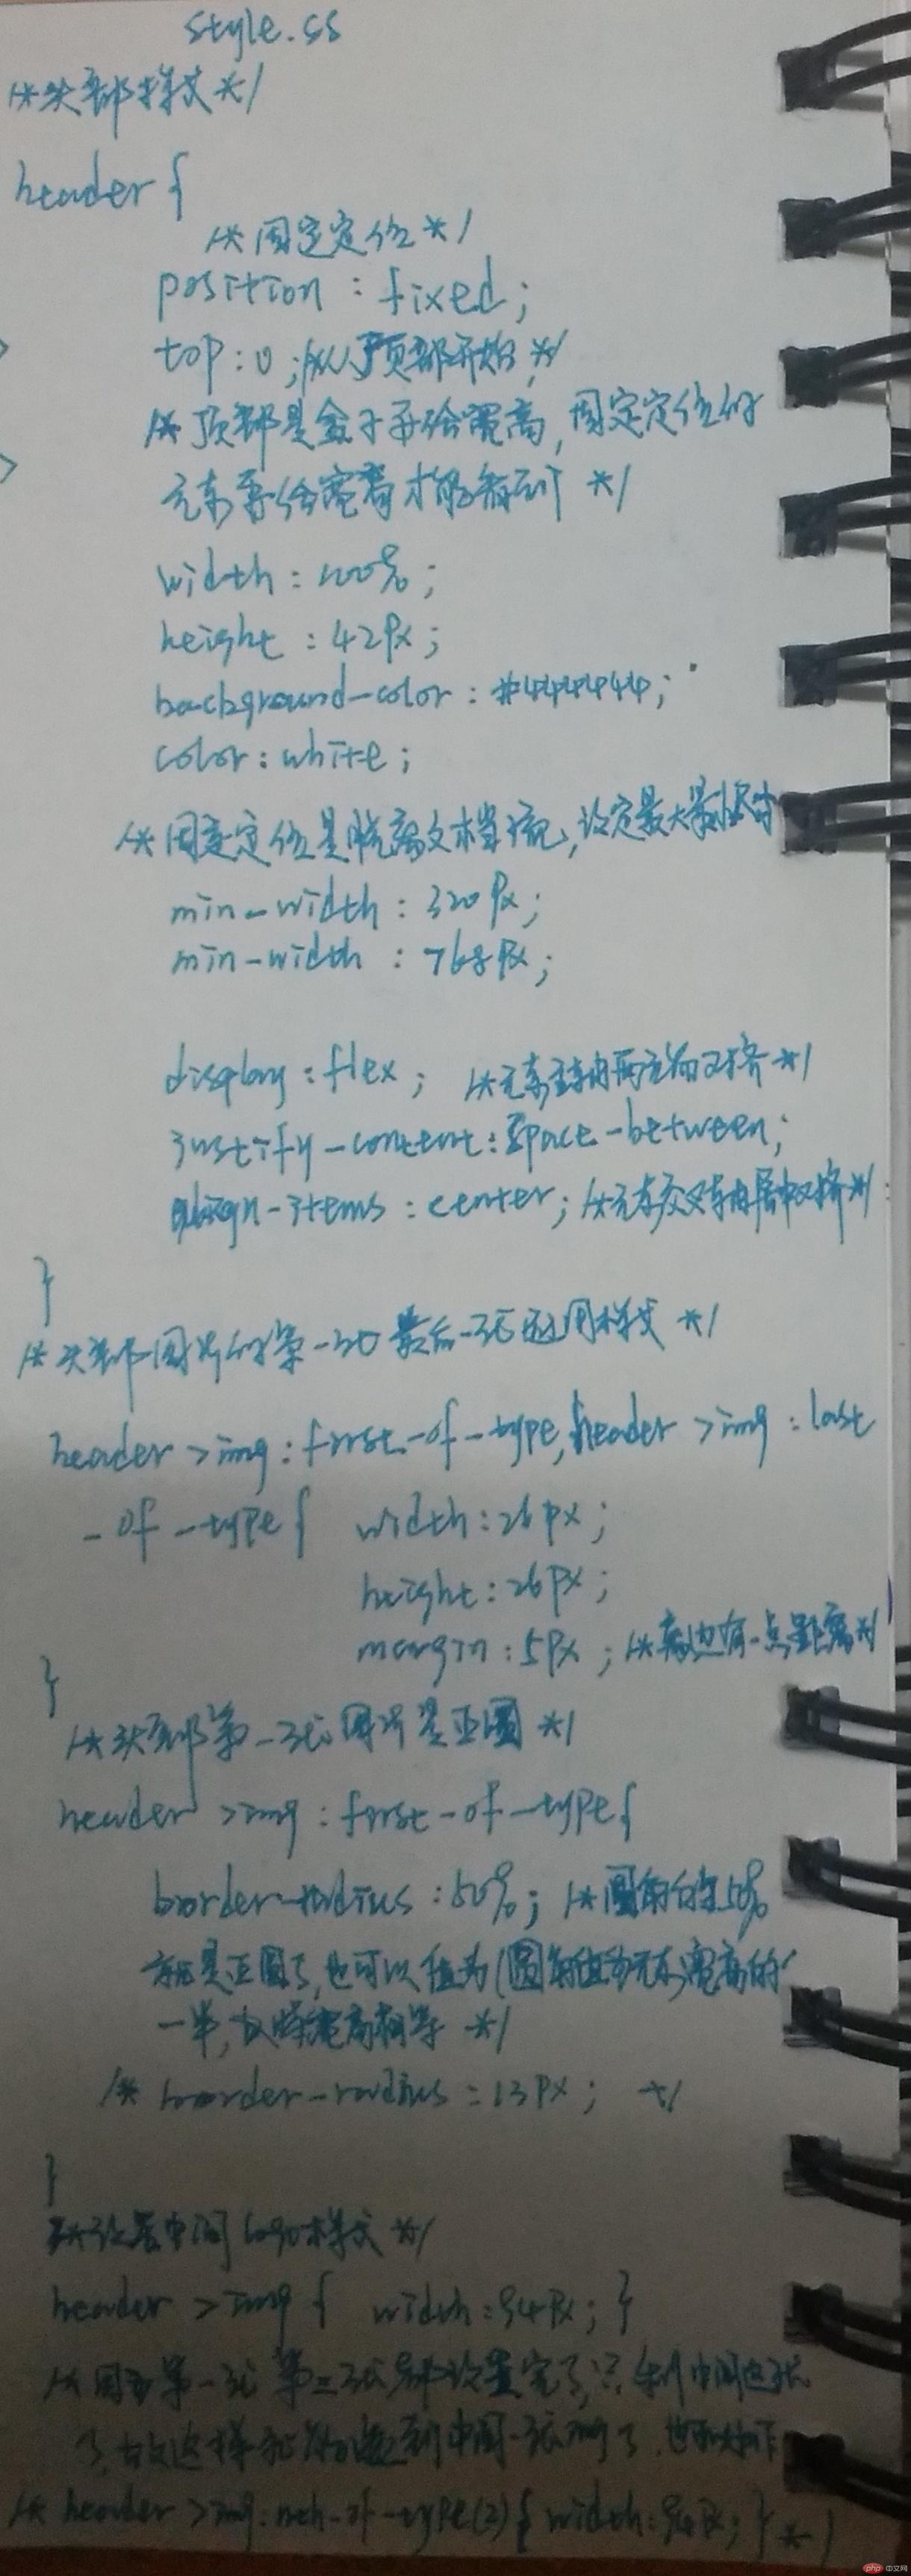 style.css
/*头部样式*/
header {
/*固定定位*/
position : fixed;
top : 0 ; /*从顶部开始*/
/*顶部是盒子要给宽高,固定定位的
元素要给宽高才能看到 */
width : 100%;
height : 42px;
background-color : #444444;
color : white;
/*固定定位是脱离文档流,设定最大最小
min-width : 320px;
min-width : 768px;
display : flex; /*元素主轴两端对齐*/
justify-content : space-between;
align-items : center; /*元素交叉轴居中对齐*/
}
/*头部图片的第一张最后一张适用样式 */
header >img : first-of-type, header >img : last
-of-type { width : 26px;
height : 26px;
margin : 5px ; /*离边有一点距离*/
}
/*头部第一张图片是正圆 */
header >img : first-of-type{
border-radius : 50%; /*圆角 50%
就是正圆了,也可以值为(圆角值为元素)宽高的
一半, 宽高相等 */
/* border-radius : 13px; */
}
/*设置中间logo样式 */
header >img { width : 94px; }
/*因为第一张 第三张 设置完了,只剩中间这张
了,故这样 到中间一张 了,也
/* header >img : nth-of-type(2) { width : 94px; } */
php 中文网